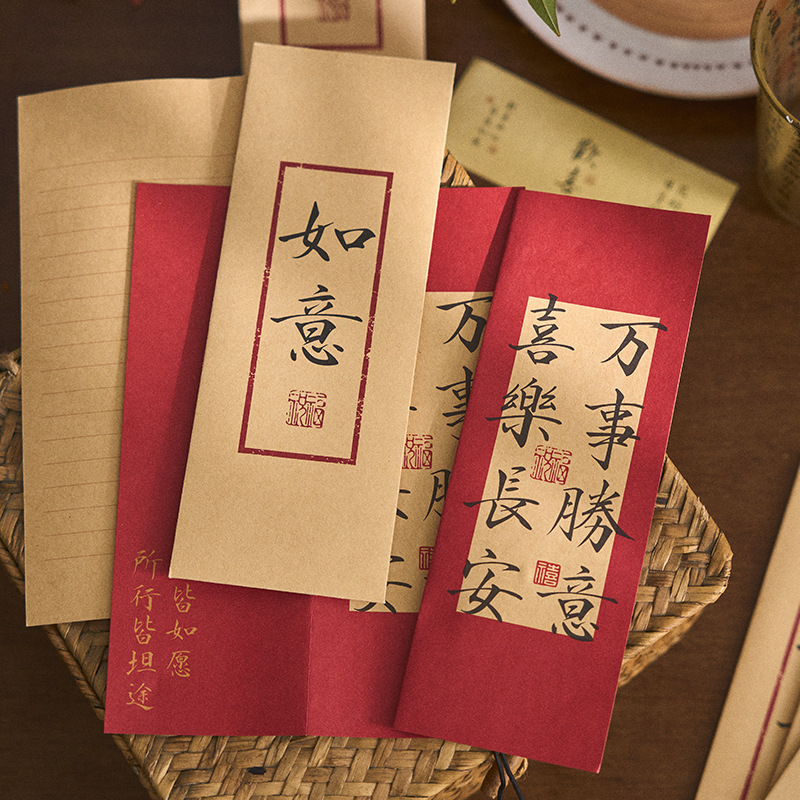 如意
万事勝意
喜樂長安
禧
万事勝
皆如愿
所行皆坦途